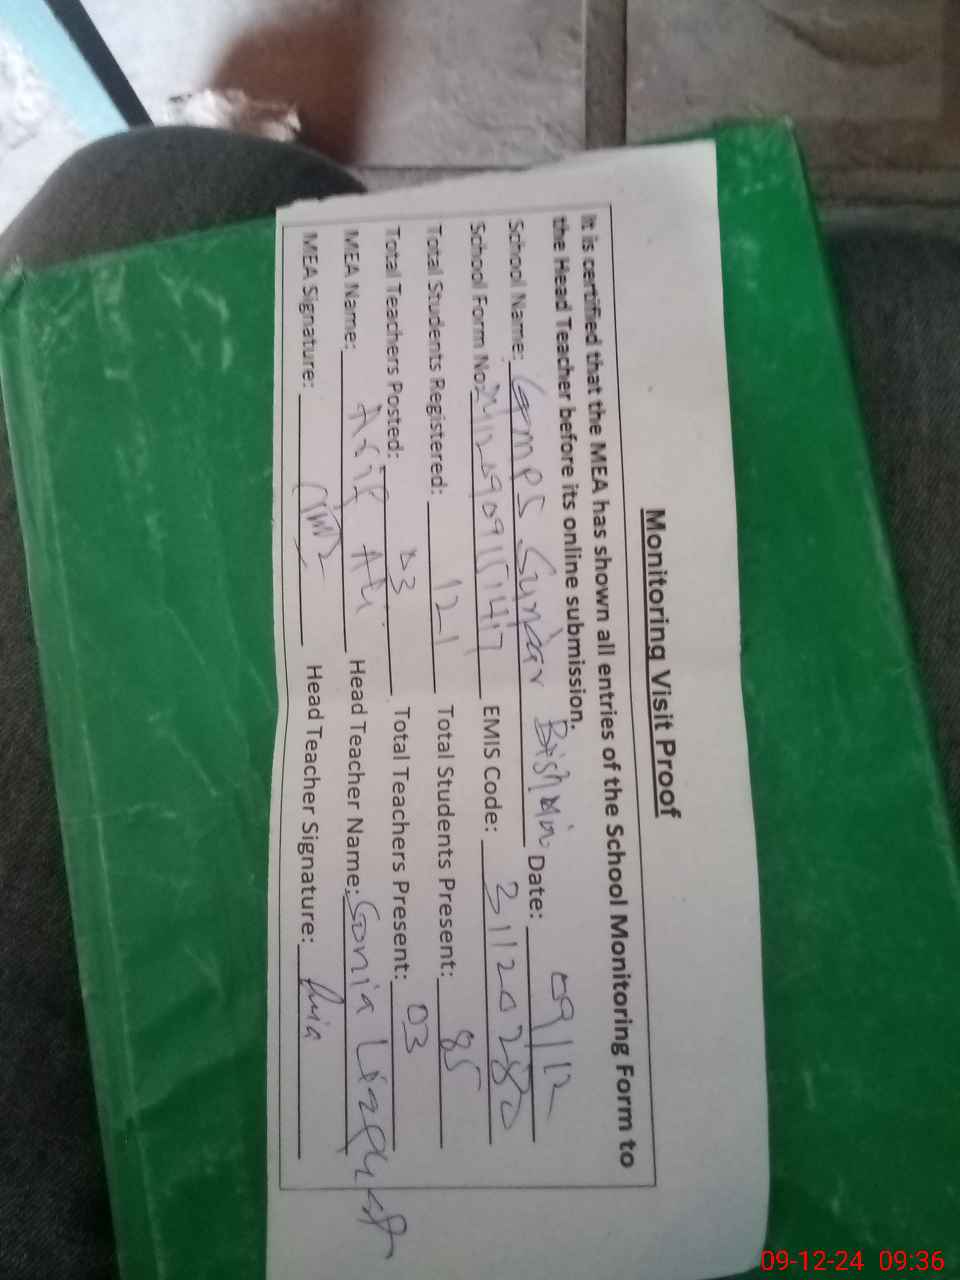 Monitoring Visit Proof
It is certified that the MEA has shown all entries of the School Monitoring Form to
the Head Teacher before its online submission.
School Name: GMPS Date: 09/12
School Form No: EMIS Code: 31120280
Total Students Registered: 121 Total Students Present: 85
Total Teachers Posted: 03 Total Teachers Present: 03
MEA Name: Asif Ali Head Teacher Name: Sonia
MEA Signature: Head Teacher Signature:
09-12-24 09:36